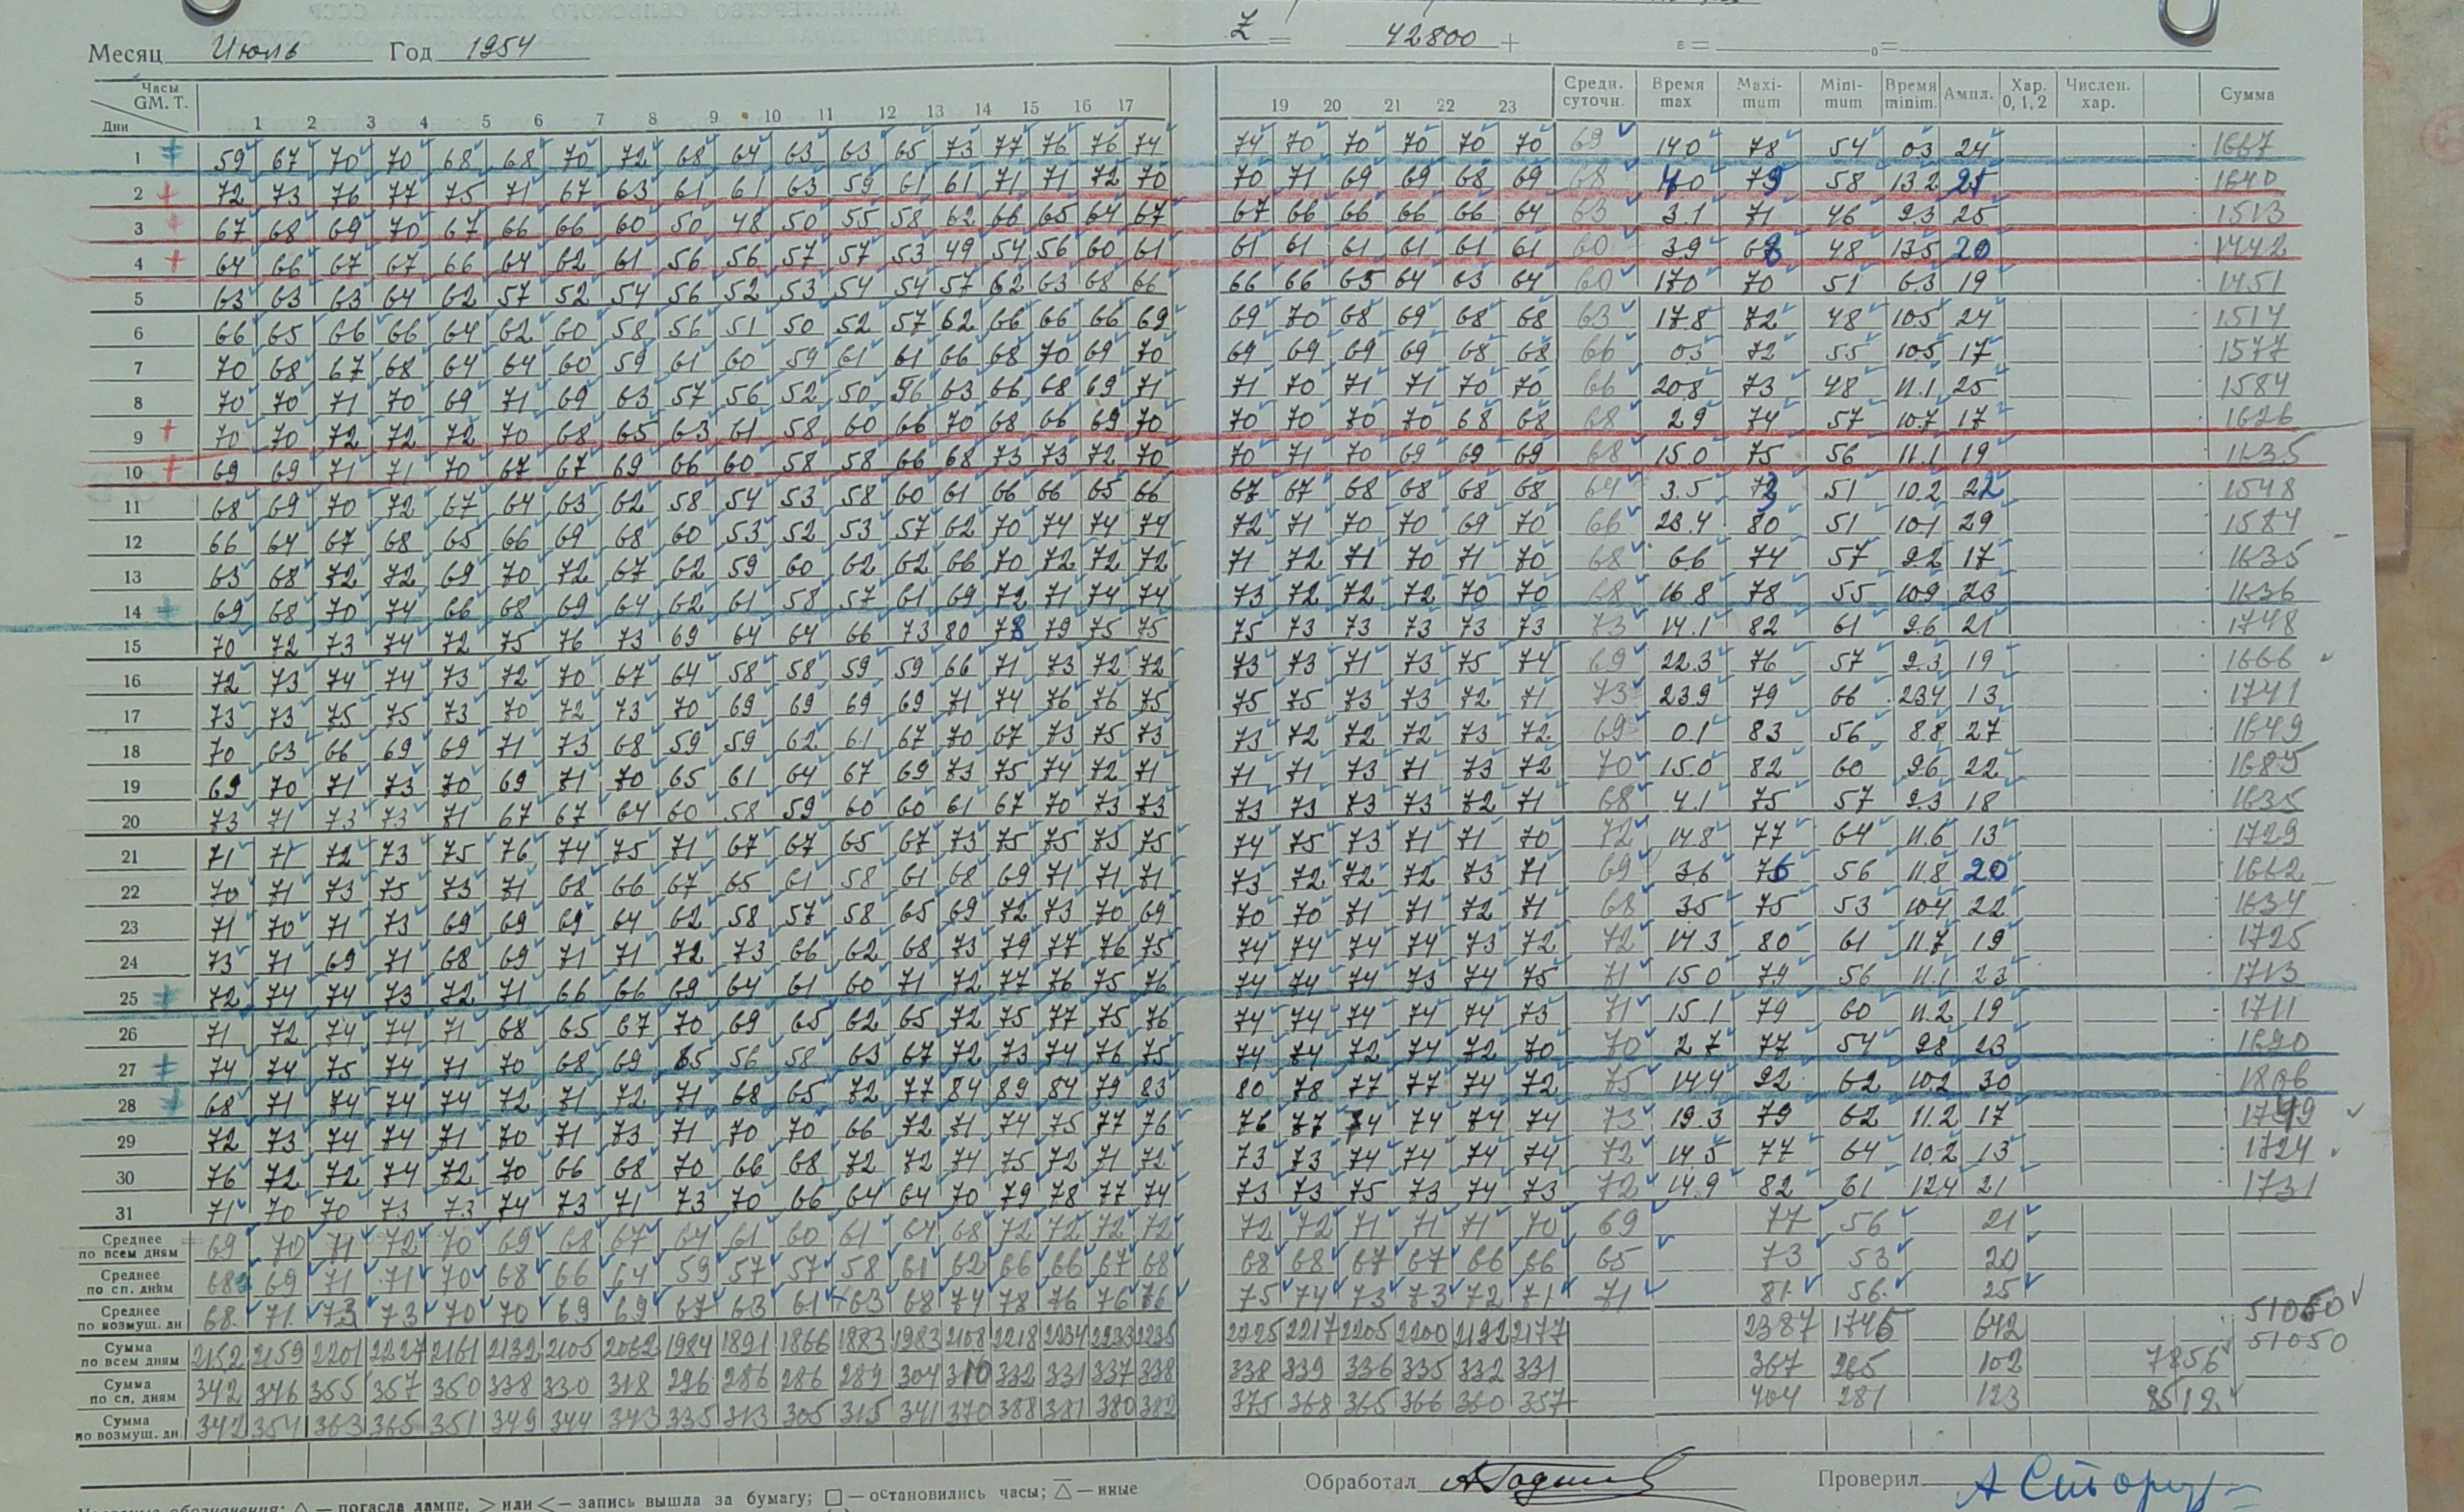 Z = 42800 +
ε = ₀=
Месяц Июль Год 1954
Часы GM. T. Дни 1 2 3 4 5 6 7 8 9 10 11 12 13 14 15 16 17 19 20 21 22 23 Средн. суточн. Время max Maxi-mum Mini-mum Время minim. Ампл. Хар. 0, 1, 2 Числен. хар. Сумма
1 59 67 70 70 68 68 70 72 68 64 63 63 65 73 77 76 76 74 74 70 70 70 70 70 69 14.0 78 54 0.3 24 1667
2 72 73 76 77 75 71 67 63 61 61 63 59 61 61 71 71 72 70 70 71 69 69 68 69 68 4.0 79 58 13.2 21 1640
3 67 68 69 70 67 66 66 60 50 48 50 55 58 62 66 65 64 67 67 66 66 66 66 64 63 3.1 71 46 9.3 25 1513
4 64 66 67 67 66 64 62 61 56 56 57 57 53 49 54 56 60 61 61 61 61 61 61 61 60 3.9 68 48 13.5 20 1442
5 63 63 63 64 62 57 52 54 56 52 53 54 54 57 62 63 68 66 66 66 65 64 63 64 60 17.0 70 51 6.3 19 1451
6 66 65 66 66 64 62 60 58 56 51 50 52 57 62 66 66 66 69 69 70 68 69 68 68 63 17.8 72 48 10.5 24 1514
7 70 68 67 68 64 64 60 59 61 60 59 61 61 66 68 70 69 70 69 69 69 69 68 68 66 0.3 72 55 10.5 17 1577
8 70 70 71 70 69 71 69 63 57 56 52 50 56 63 66 68 69 71 71 70 71 71 70 70 66 20.8 73 48 11.1 25 1584
9 70 70 72 72 72 70 68 65 63 61 58 60 66 70 68 66 69 70 70 70 70 70 68 68 68 2.9 74 57 10.7 17 1626
10 69 69 71 71 70 67 67 69 66 60 58 58 66 68 73 73 72 70 70 71 70 69 69 69 68 15.0 75 56 11.1 19 1635
11 68 69 70 72 67 64 63 62 58 54 53 58 60 61 66 66 65 66 67 67 68 68 68 68 64 3.5 73 51 10.2 22 1548
12 66 64 67 68 65 66 69 68 60 53 52 53 57 62 70 74 74 74 72 71 70 70 69 70 66 23.4 80 51 10.1 29 1584
13 63 68 72 72 69 70 72 67 62 59 60 62 62 66 70 72 72 72 71 72 71 70 71 70 68 6.6 74 57 9.2 17 1635
14 69 68 70 74 66 68 69 64 62 61 58 57 61 69 72 71 74 74 73 72 72 72 70 70 68 16.8 78 55 10.9 23 1636
15 70 72 73 74 72 75 76 73 69 64 64 66 73 80 78 79 75 75 75 73 73 73 73 73 73 14.1 82 61 9.6 21 1748
16 72 73 74 74 73 72 70 67 64 58 58 59 59 66 71 73 72 72 73 73 71 73 75 74 69 22.3 76 57 9.3 19 1666
17 73 73 75 75 73 70 72 73 70 69 69 69 69 71 74 76 76 75 75 75 73 73 72 71 73 23.9 79 66 23.4 13 1741
18 70 63 66 69 69 71 73 68 59 59 62 61 67 70 67 73 75 73 73 72 72 72 73 72 69 0.1 83 56 8.8 27 1649
19 69 70 71 73 70 69 71 70 65 61 64 67 69 73 75 74 72 71 71 71 73 71 73 72 70 15.0 82 60 9.6 22 1685
20 73 71 73 73 71 67 67 64 60 58 59 60 60 61 67 70 73 73 73 73 73 73 72 71 68 4.1 75 57 9.3 18 1635
21 71 71 72 73 75 76 74 75 71 67 67 65 67 73 75 75 75 75 74 75 73 71 71 70 72 14.8 77 64 11.6 13 1729
22 70 71 73 75 73 71 68 66 67 65 61 58 61 68 69 71 71 71 73 72 72 72 73 71 69 3.6 76 56 11.8 20 1662
23 71 70 71 73 69 69 69 64 62 58 57 58 65 69 72 73 70 69 70 70 71 71 72 71 68 3.5 75 53 10.4 22 1634
24 73 71 69 71 68 69 71 71 72 73 66 62 68 73 79 77 76 75 74 74 74 74 73 72 72 14.3 80 61 11.7 19 1725
25 72 74 74 73 72 71 66 66 69 64 61 60 71 72 77 76 75 76 74 74 74 73 74 75 71 15.0 79 56 11.1 23 1713
26 71 72 74 74 71 68 65 67 70 69 65 62 65 72 75 77 75 76 74 74 74 74 74 73 71 15.1 79 60 11.2 19 1711
27 74 74 75 74 71 70 68 69 65 56 58 63 67 72 73 74 76 75 74 74 72 74 72 70 70 2.7 77 54 9.8 23 1690
28 68 71 74 74 74 72 71 72 71 68 65 72 77 84 89 84 79 83 80 78 77 77 74 72 75 14.4 92 62 10.2 30 1806
29 72 73 74 74 71 70 71 73 71 70 70 66 72 71 74 75 77 76 76 77 74 74 74 74 73 19.3 79 62 11.2 17 1749
30 76 72 72 74 72 70 66 68 70 66 68 72 72 74 75 72 71 72 73 73 74 74 74 74 72 14.5 77 64 10.2 13 1724
31 71 70 70 73 73 74 73 71 73 70 66 64 64 70 79 78 77 74 73 73 75 73 74 73 72 14.9 82 61 12.4 21 1731
Среднее по всем дням 69 70 71 72 70 69 68 67 64 61 60 61 64 68 72 72 72 72 72 72 71 71 71 70 69 77 56 21
Среднее по сп. дням 68 69 71 71 70 68 66 64 59 57 57 58 61 62 66 66 67 68 68 68 67 67 66 66 65 73 53 20
Среднее по возмущ. дн 68 71 73 73 70 70 69 69 67 63 61 63 68 74 78 76 76 76 75 74 73 73 72 71 71 81 56 25 51050
Сумма по всем дням 2152 2159 2201 2227 2161 2132 2105 2062 1984 1891 1866 1883 1983 2108 2218 2234 2233 2235 2225 2217 2205 2200 2192 2177 2387 1746 642 51050
Сумма по сп. дням 342 346 355 357 350 338 330 318 296 286 286 289 304 310 332 331 337 338 338 339 336 335 332 331 367 265 102 7856
Сумма по возмущ. дн. 342 354 363 365 351 349 344 343 335 313 305 315 341 370 388 381 380 382 375 368 365 366 360 357 404 281 123 8512
Обработал Проверил
△ — погасла лампе, > или < — запись вышла за бумагу; □ — остановились часы; △ — иные